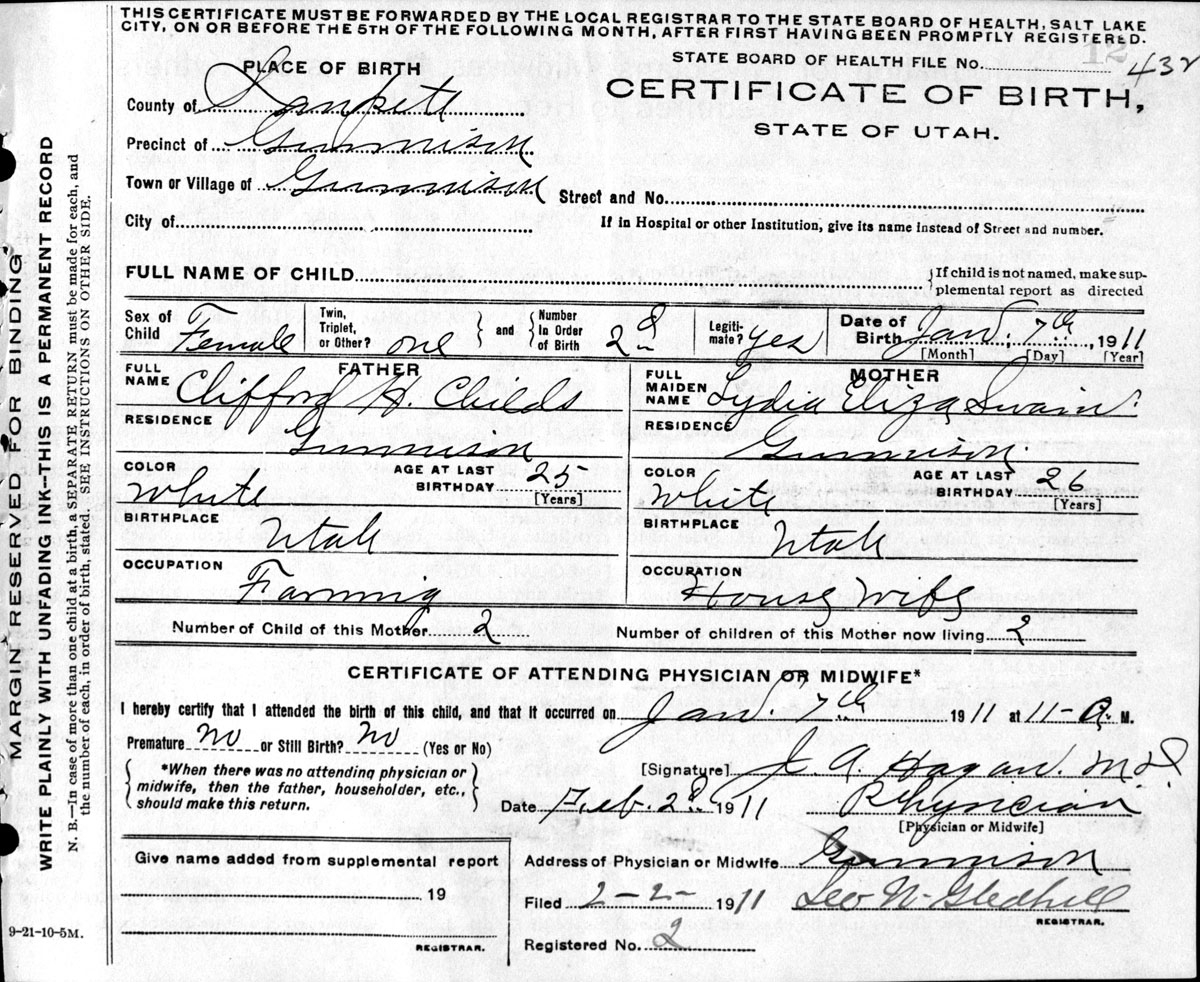 THIS CERTIFICATE MUST BE FORWARDED BY THE LOCAL REGISTRAR TO THE STATE BOARD OF HEALTH, SALT LAKE
CITY, ON OR BEFORE THE 5TH OF THE FOLLOWING MONTH, AFTER FIRST HAVING BEEN PROMPTLY REGISTERED.
12
STATE BOARD OF HEALTH FILE No. 432
PLACE OF BIRTH
CERTIFICATE OF BIRTH,
STATE OF UTAH.
County of Sanpete
Precinct of Gunnison
Town or Village of Gunnison Street and No.
City of If in Hospital or other Institution, give its name instead of Street and number.
FULL NAME OF CHILD {If child is not named, make sup-
plemental report as directed
Sex of Child Female Twin, Triplet, or Other? one } and { Number In Order of Birth 2d Legiti-mate? yes Date of Birth Jan. 7th, 1911
[Month] [Day] [Year]
FATHER MOTHER
FULL NAME Clifford H. Childs FULL MAIDEN NAME Lydia Eliza Swain
RESIDENCE Gunnison RESIDENCE Gunnison
COLOR White AGE AT LAST BIRTHDAY 25 [Years] COLOR White AGE AT LAST BIRTHDAY 26 [Years]
BIRTHPLACE Utah BIRTHPLACE Utah
OCCUPATION Farming OCCUPATION House Wife
Number of Child of this Mother 2 Number of children of this Mother now living 2
CERTIFICATE OF ATTENDING PHYSICIAN OR MIDWIFE*
I hereby certify that I attended the birth of this child, and that it occurred on Jan. 7th 1911 at 11-A M.
Premature No or Still Birth? No (Yes or No)
{*When there was no attending physician or
midwife, then the father, householder, etc.,
should make this return.}
[Signature] A. Hagan. M.D.
Date Feb. 2d 1911 Physician
[Physician or Midwife]
Give name added from supplemental report
19
REGISTRAR.
Address of Physician or Midwife Gunnison
Filed 2-2- 1911 Leo N. Gledhill
REGISTRAR.
Registered No. 2
9-21-10-5M.
MARGIN RESERVED FOR BINDING
WRITE PLAINLY WITH UNFADING INK—THIS IS A PERMANENT RECORD
N. B.—In case of more than one child at a birth, a SEPARATE RETURN must be made for each, and
the number of each, in order of birth, stated. SEE INSTRUCTIONS ON OTHER SIDE.